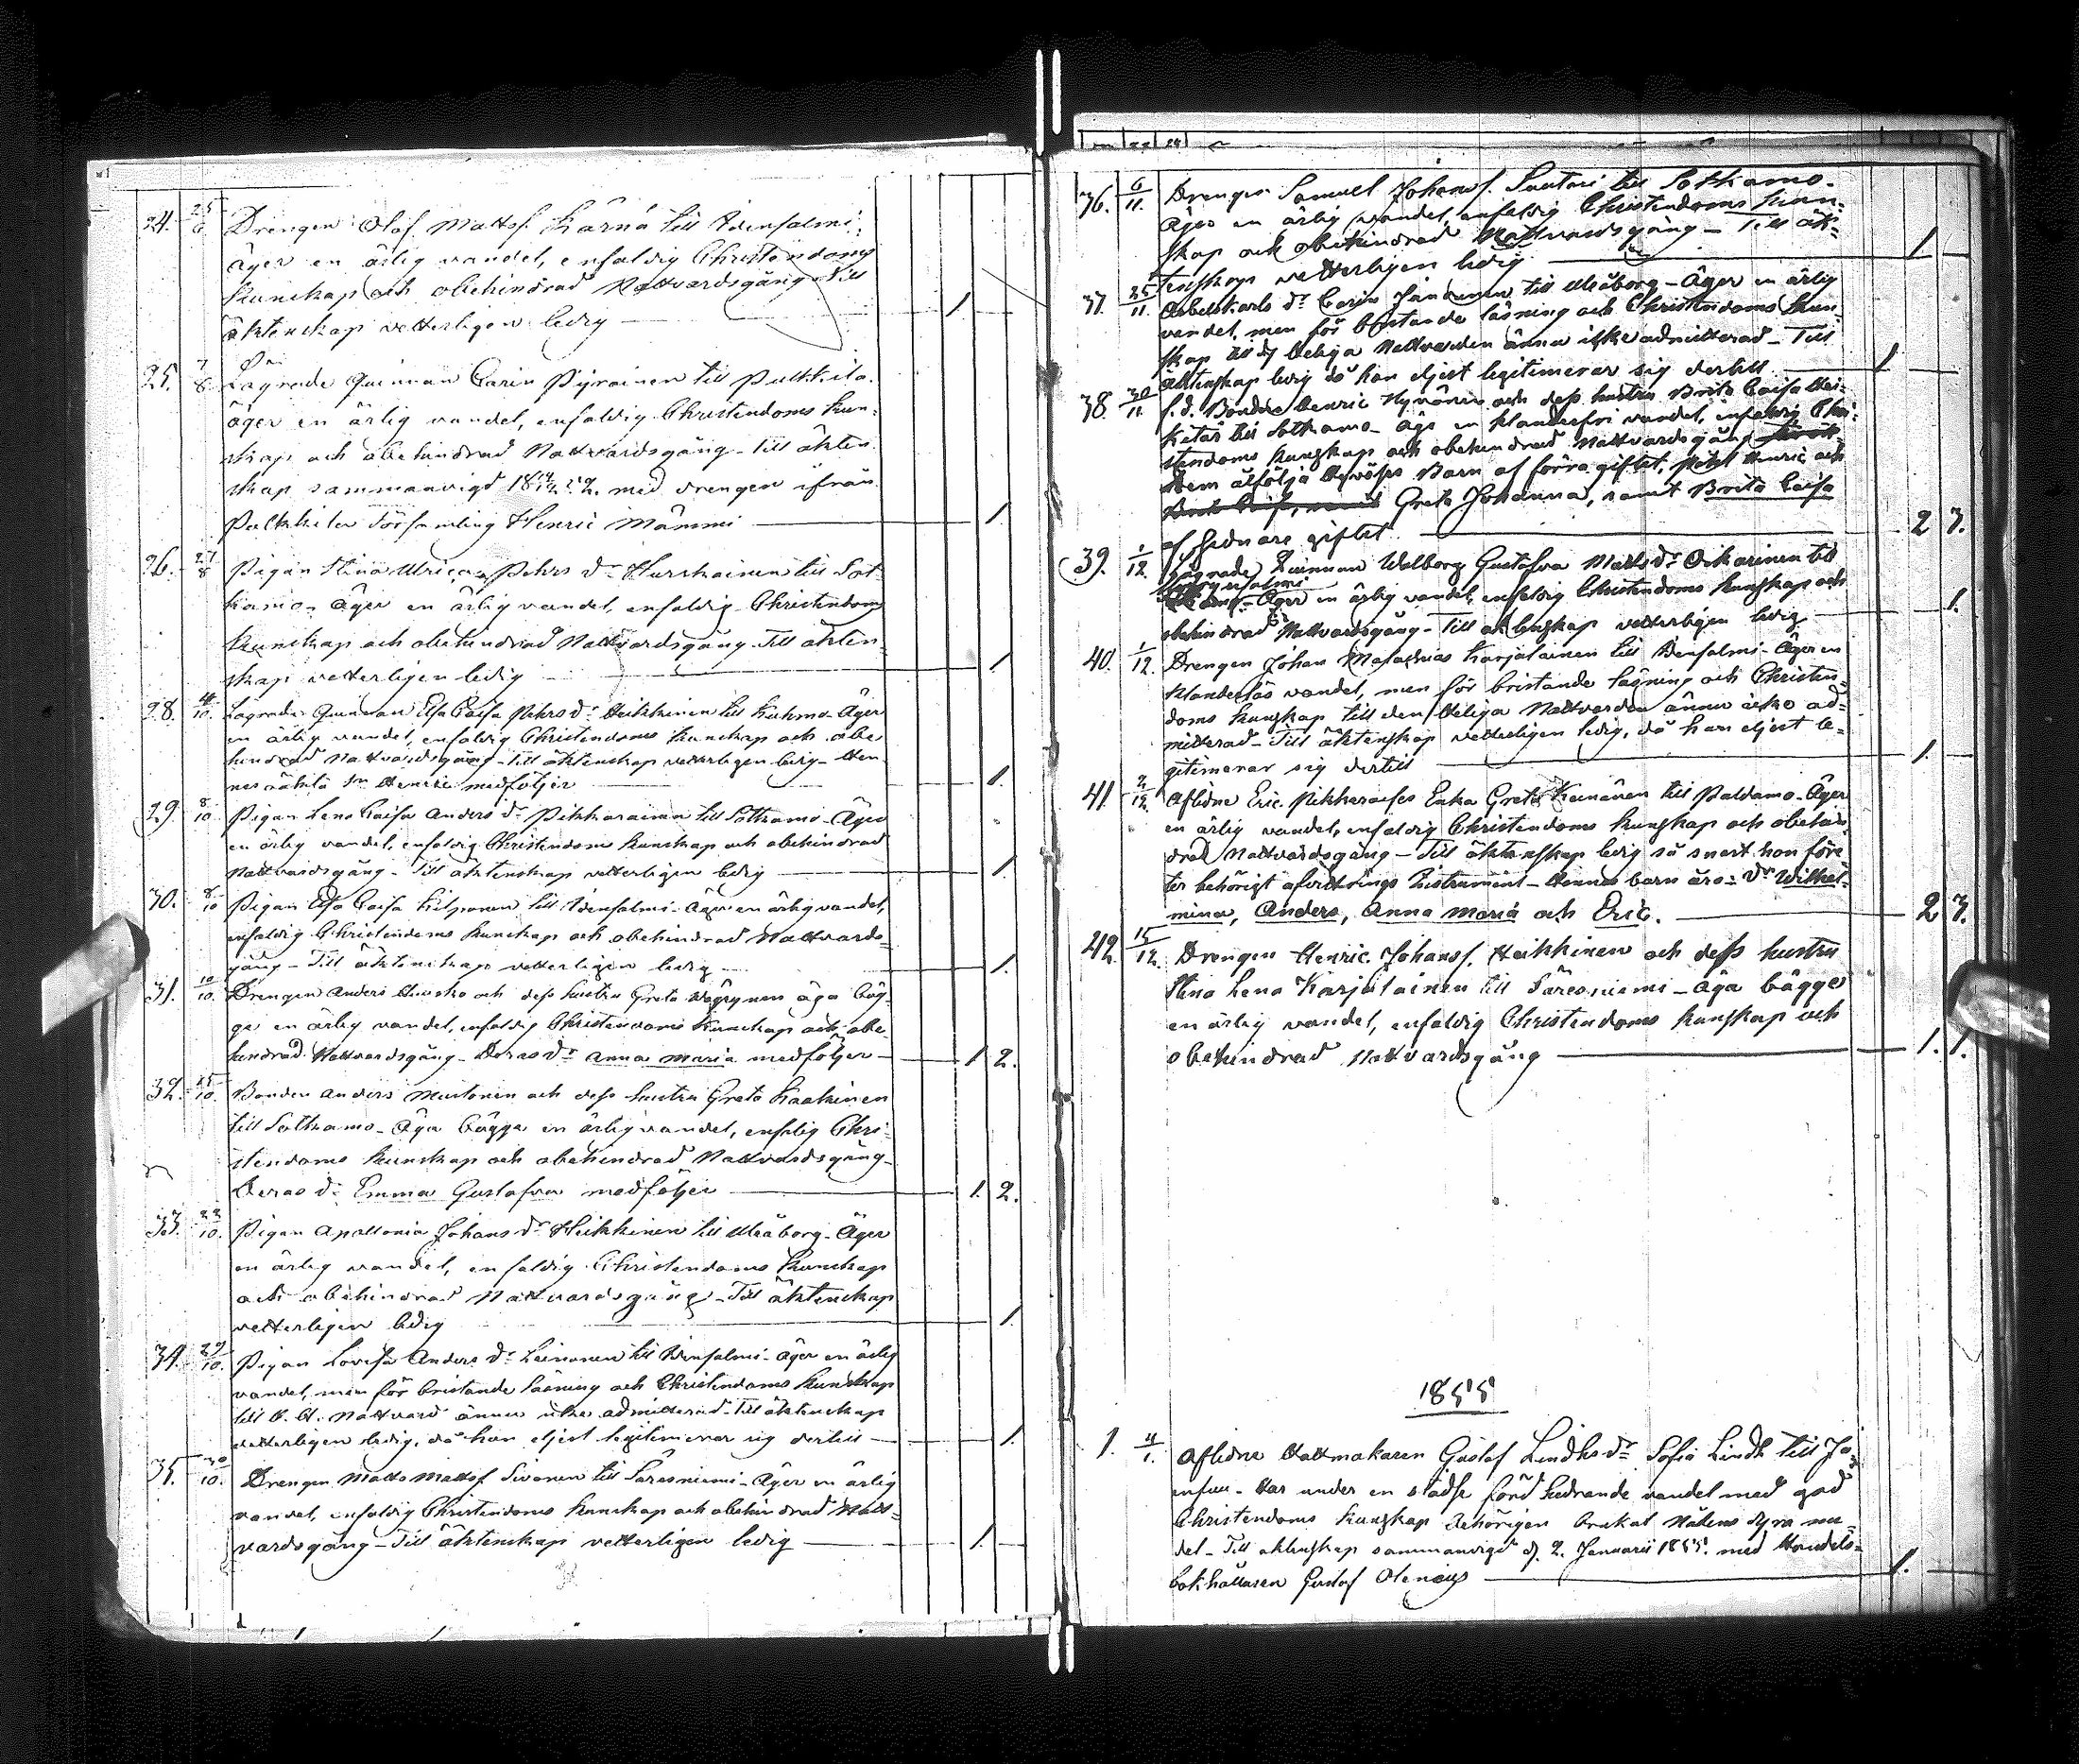 24. 25/6 Drengen Olof Mattsf. Kärnä till Idensalmi,
äger en ärlig vandel, enfaldig Christendoms
kunskap och obehindrad Nattvardsgång. Till
äktenskap vetterligen ledig 1.
25. 7/8 Lagrade Quinnan Carin Pyrainen till Pulkkila.
äger en ärlig vandel, enfaldig Christendoms kun-
skap och obehindrad Nattvardsgång. Till äkten-
skap sammanvigd med drengen ifrån
Pulkkila Församling Henric Mämmi 1.
26. 27/8 Pigan Stina Ulrica Pehrs dr Hurskainen till Sot-
kamo. Äger en ärlig vandel, enfaldig Christendoms
kunskap och obehindrad Nattvardsgång. Till äkten-
skap vetterligen ledig 1.
28. 4/10 Lagrade Quinnan Elsa Caisa Pehrs dr Heikkinen till Kuhmo. Äger
en ärlig vandel, enfaldig Christendoms kunskap och obe-
hindrad Nattvardsgång - till äktenskap vetterligen ledig - Hen-
nes oäkta Sn Henric medföljer 1.
29. 8/10 Pigan Lena Caisa Anders dr Pikkarainen till Sotkamo - Äger
en ärlig vandel, enfaldig Christendoms kunskap och obehindrad
Nattvardsgång - Till äktenskap vetterligen ledig 1.
30. 8/10 Pigan Elsa Caisa Kilponen till Idensalmi - Äger en ärlig vandel,
enfaldig Christendoms kunskap och obehindrad Nattvards-
gång - Till äktenskap vetterligen ledig 1.
31. 10/10 Drengen Anders Huusko och dess hustru Greta Wäyrynen äga båg-
ge en ärlig vandel, enfaldig Christendoms kunskap och obe-
hindrad Nattvardsgång - Deras dr Anna Maria medföljer 1 2.
32. 15/10 Bonden Anders Mustonen och dess hustru Greta Kaakinen
till Sotkamo - Äga bågge en ärlig vandel, enfalig Chri-
stendoms kunskap och obehindrad Nattvardsgång -
Deras dr Emma Gustafva medföljer 1. 2.
33. 22/10 Pigan Apollonia Johans dr Heikkinen till Uleåborg - Äger
en ärlig vandel, enfaldig Christendoms kunskap
och obehindrad Nattvardsgång - Till äktenskap
vetterligen ledig 1.
34. 29/10 Pigan Lovisa Anders dr Leinonen till Idensalmi - Äger en ärlig
vandel, men för bristande läsning och Christendoms kunskap
till H. H. Nattvard ännu icke admitterad. Till äktenskap
vetterligen ledig, då hon eljest legitimerar sig dertill 1.
35. 30/10 Drengen Matts Mattsf Sivonen till Säresniemi - Äger en ärlig
vandel, enfaldig Christendoms kunskap och obehindrad Natt-
vardsgång - Till äktenskap vetterligen ledig 1.
36. 6/11. Drengen Samuel Johansf. Sautari till Sotkamo.
Äger en ärlig vandel, enfaldig Christendoms kun-
skap och obehindrad Nattvardsgång - Till äk-
tenskap vetterligen ledig 1
37. 25/11 Arbetskarls dr Carin Jäntunen till Uleåborg - Äger en ärlig
vandel, men för bristande läsning och Christendoms kun-
skap till d. Heliga Nattvarden ännu icke admitterad - Till
äktenskap ledig då hon eljest legitimerar sig dertill 1
38. 30/11 f. d. Bonden Henric Hyvönen och dess hustru Brita Caisa
till Sotkamo - äga en klanderfri vandel, enfaldig Chri-
stendoms kunskap och obehindrad Nattvardsgång
Dem åtfölja Barn af förra giftet, Pehr Henric och
Greta Johanna, samt Brita Caisa
af sednare giftet 2 3.
39. 1/12. Lägrade Quinnan Walborg Gustafva Matts dr Oikarinen till
Äger en ärlig vandel, enfaldig Christendoms kunskap och
obehindrad Nattvardsgång - Till äktenskap vetterligen ledig 1.
40. 1/12. Drengen Johan Matathias Karjalainen till Idensalmi - Äger en
klanderlös vandel, men för bristande läsning och Christen-
doms kunskap till den Heliga Nattvarden ännu icke ad-
mitterad - Till äktenskap vetterligen ledig, då han eljest le-
gitimerar sig dertill 1.
41. 2/12. Aflidne Eric Pikkaraises Enka Greta Keinänen till Paldamo - Äger
en ärlig vandel, enfaldig Christendoms kunskap och obehin-
drad Nattvardsgång - Till äktenskap ledig så snart hon före-
ter behörigt afvittrings Instrument - Hennes barn äro: dr Wilhel-
mina, Anders, Anna Maria och Eric. 2 3.
42. 15/12. Drengen Henric Johansf. Heikkinen och dess hustru
Stina Lena Karjalainen till Säresniemi - Äga bågge
en ärlig vandel, enfaldig Christendoms kunskap och
obehindrad Nattvardsgång 1. 1.
1855
1. 4/1. Aflidne Hattmakaren Gustaf Lindhs dr Sofia Lindh till Jo-
ensuu - Har under en städse förd hedrande vandel med god
Christendoms kunskap behörigen brukat Nådens dyra me-
del - Till äktenskap sammanvigd d. 2. Januarii 1855. med Handels-
bokhållaren Gustaf 1.